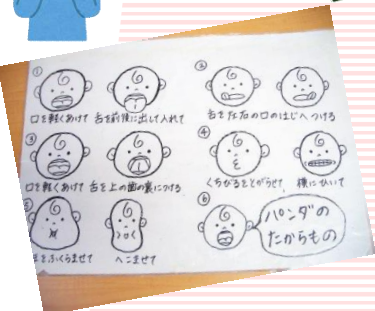 ①
口を軽くあけて 舌を前後に出して入れて
②
舌を左右の口のはじへつける
③
口を軽くあけて 舌を上の歯の裏につける
④
くちびるをとがらせて、 横に引いて
をふくらませて へこませて
⑥
パンダの
たからもの